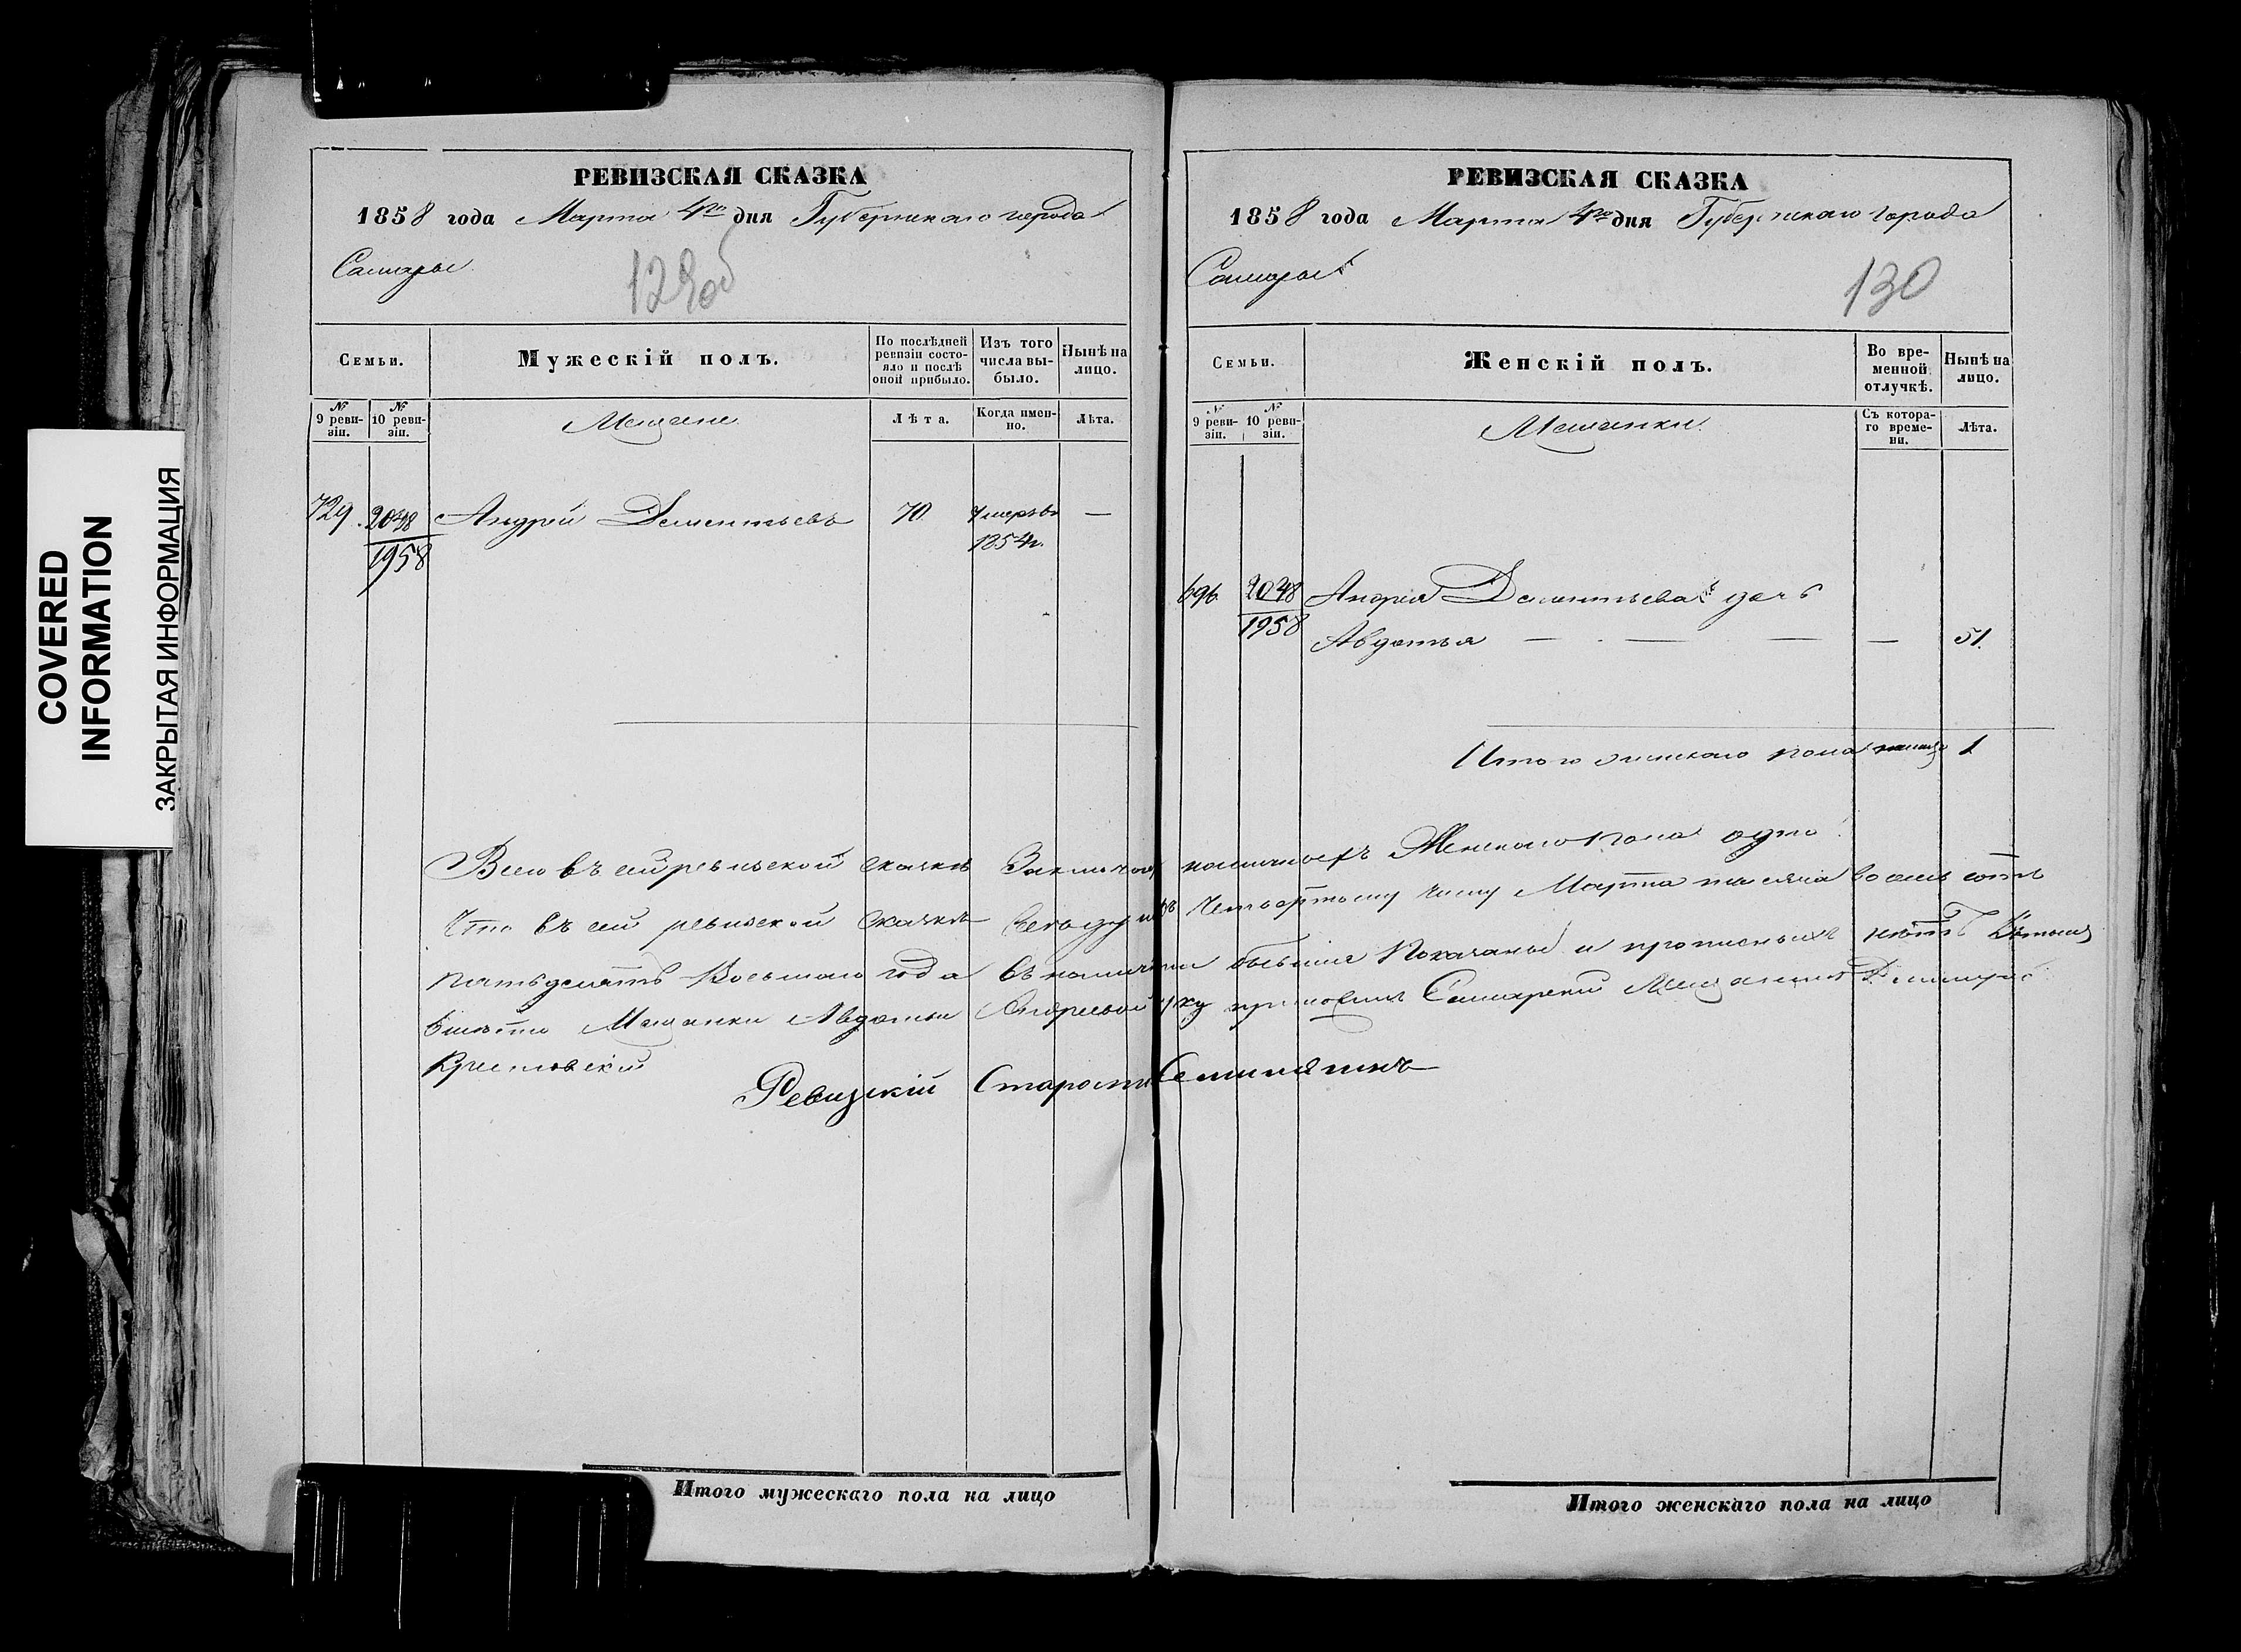 COVERED
INFORMATION
ЗАКРЫТАЯ ИНФОРМАЦИЯ
РЕВИЗСКАЯ СКАЗКА
1858 года Марта 4го дня Губернскаго города
Самары
129об
Семьи.
Мужескій полъ.
По послѣдней ревизіи состояло и послѣ оной прибыло.
Изъ того числа выбыло.
Нынѣ на лицо.
№ 9 ревизіи.
№ 10 ревизіи.
Мещане
Лѣта.
Когда именно.
Лѣта.
729. 2048 Андрей Дементьевъ 70 Умеръ въ —
1958 1854г.
Итого мужескаго пола на лицо
РЕВИЗСКАЯ СКАЗКА
1858 года Марта 4го дня Губернскаго города
Самары
130
Семьи.
Женскій полъ.
Во временной отлучкѣ.
Нынѣ на лицо.
№ 9 ревизіи.
№ 10 ревизіи.
Мещанки
Съ котораго времени.
Лѣта.
696 2048 Андрея Дементьева дочь
1958 Авдотья — — — — 51.
Итого женскаго пола 1
Всего въ сей ревизской сказкѣ наличныхъ Женскаго пола одна
Что въ сей ревизской сказкѣ четвертому числу Марта месяца восемь сотъ
пятьдесятъ Восьмаго года въ наличіи бывшіе Показаны и прописныхъ нѣтъ
Мещанки Авдотьи Андреевой руку приложилъ Самарский Мещанинъ Дмитрий
Ревизскій Староста
Итого женскаго пола на лицо